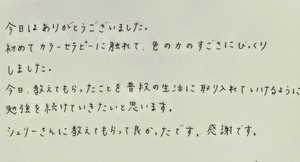 今日はありがとうございました。
初めてカラーセラピーに触れて、色の力のすごさにびっくり
しました。
今日、教えてもらったことを普段の生活に取り入れていけるように
勉強を続けていきたいと思います。
シェリーさんに教えてもらって良かったです。感謝です。